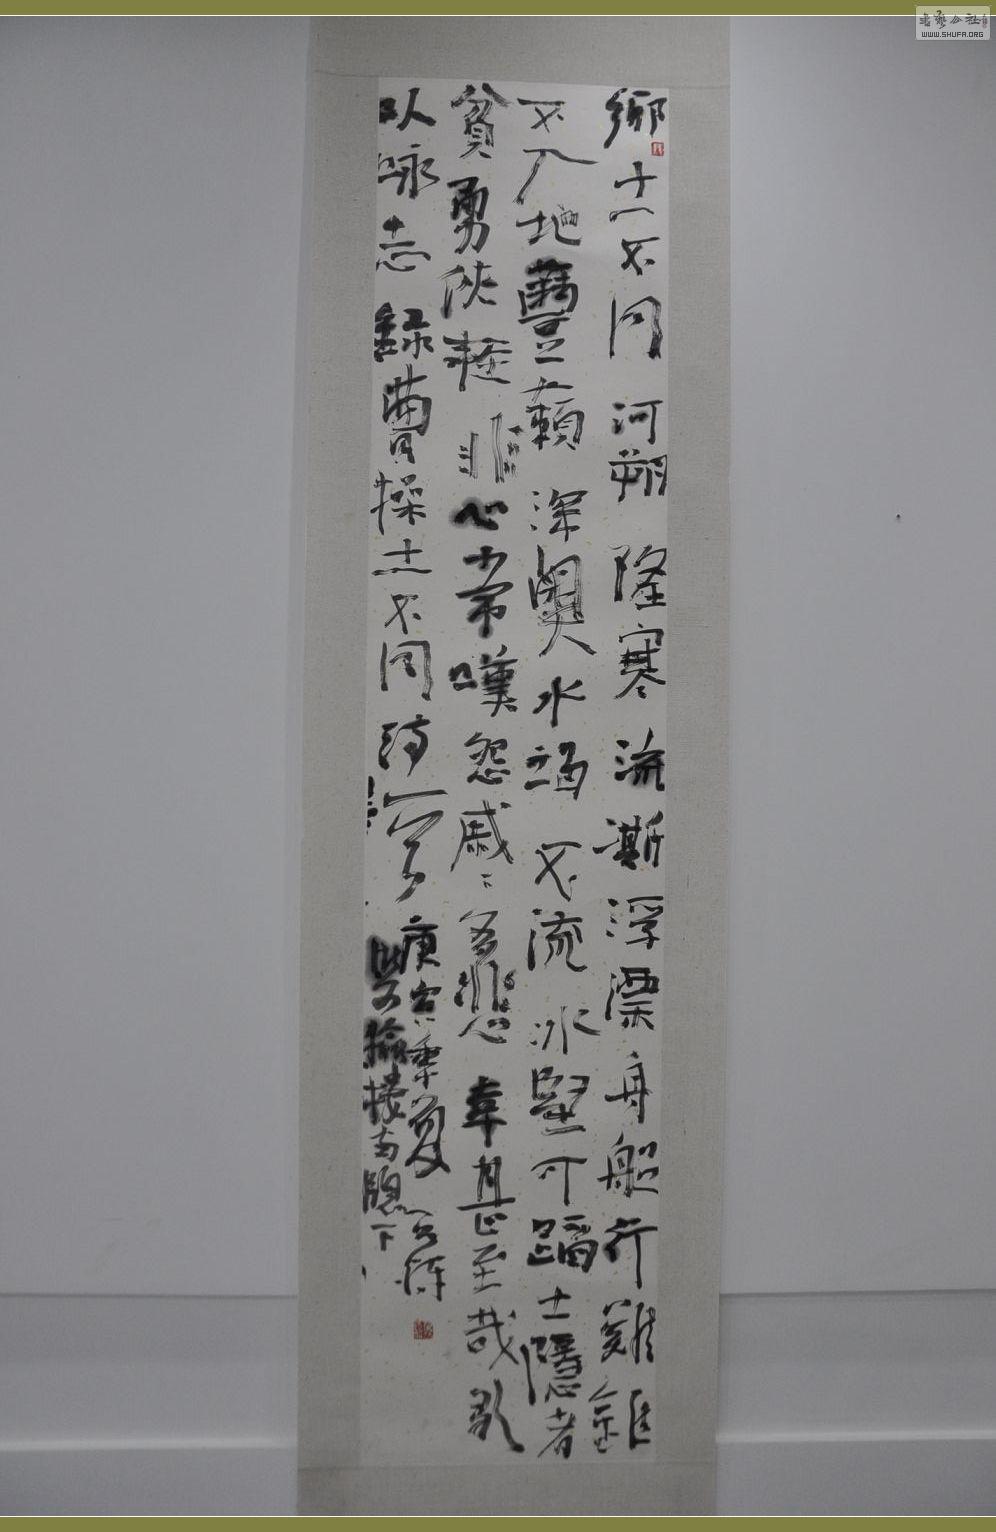 鄉土不同河朔隆寒流澌浮漂舟船行難錐
不入地豐藾深奧水竭不流冰堅可蹈士隱者
貧勇俠輕非心常嘆怨戚戚多悲幸甚至哉歌
以詠志錄曹操土不同詩一首庚寅季夏
樓南窗下
WWW.SHUFA.ORG